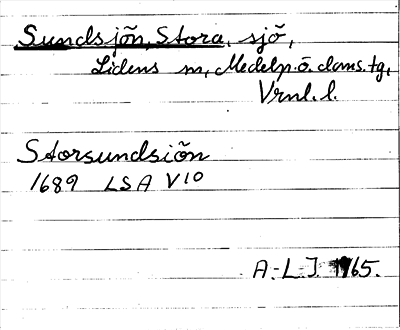 Sundsjön, Stora, sjö,
Lidens sn, Medelp. ö. doms. tg,
Vrnl. l.
Storsundsiön
1689 LSA V10
A.-L. J. 1965.